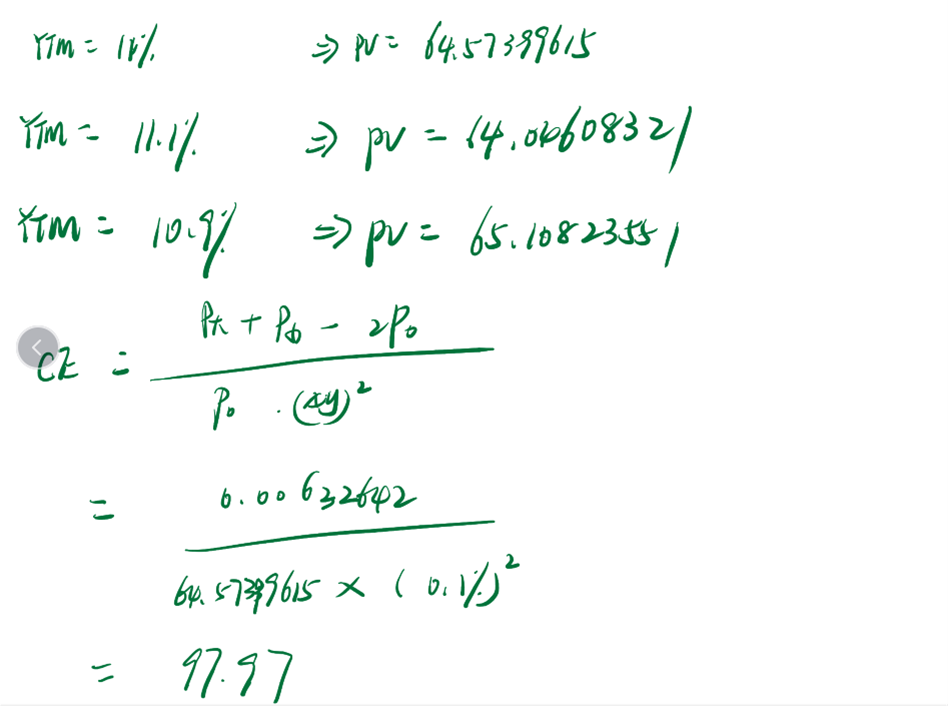 YTM = 11% ⇒ PV = 64.57399615
YTM = 11.1% ⇒ PV = 64.04608321
YTM = 10.9% ⇒ PV = 65.10823551
P + P - 2P₀
CE =
P₀ · (Δy)²
0.00632642
=
64.57399615 × (0.1%)²
= 97.97